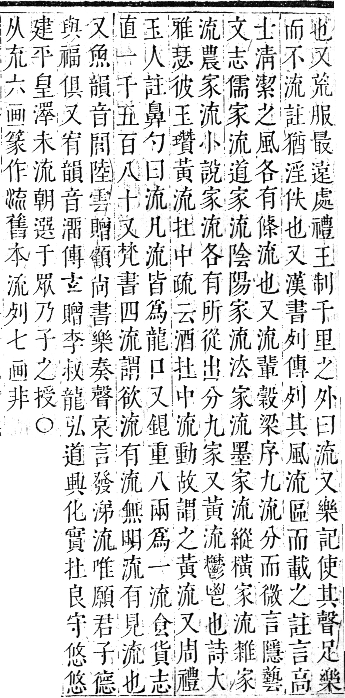 也又荒服最遠處禮王制千里之外曰流又樂記使其聲足樂
而不流註猶淫佚也又漢書列傳列其風流區而載之註言高
士清潔之風各有條流也又流輩穀梁序九流分而微言隱藝
文志儒家流道家流陰陽家流法家流墨家流縱橫家流雜家
流農家流小說家流各有所從出分九家又黃流鬱鬯也詩大
雅瑟彼玉瓚黃流在中疏云酒在中流動故謂之黃流又周禮
玉人註鼻勺曰流凡流皆爲龍口又銀重八兩爲一流食貨志
直一千五百八十又梵書四流謂欲流有流無明流有見流也
又魚韻音閭陸雲贈顧尚書樂奏聲哀言發涕流唯願君子德
與福俱又宥韻音溜傅玄贈李叔龍弘道興化實在良守悠悠
建平皇澤未流朝選于眾乃子之授〇
从㐬六画篆作𣹳舊本流列七画非